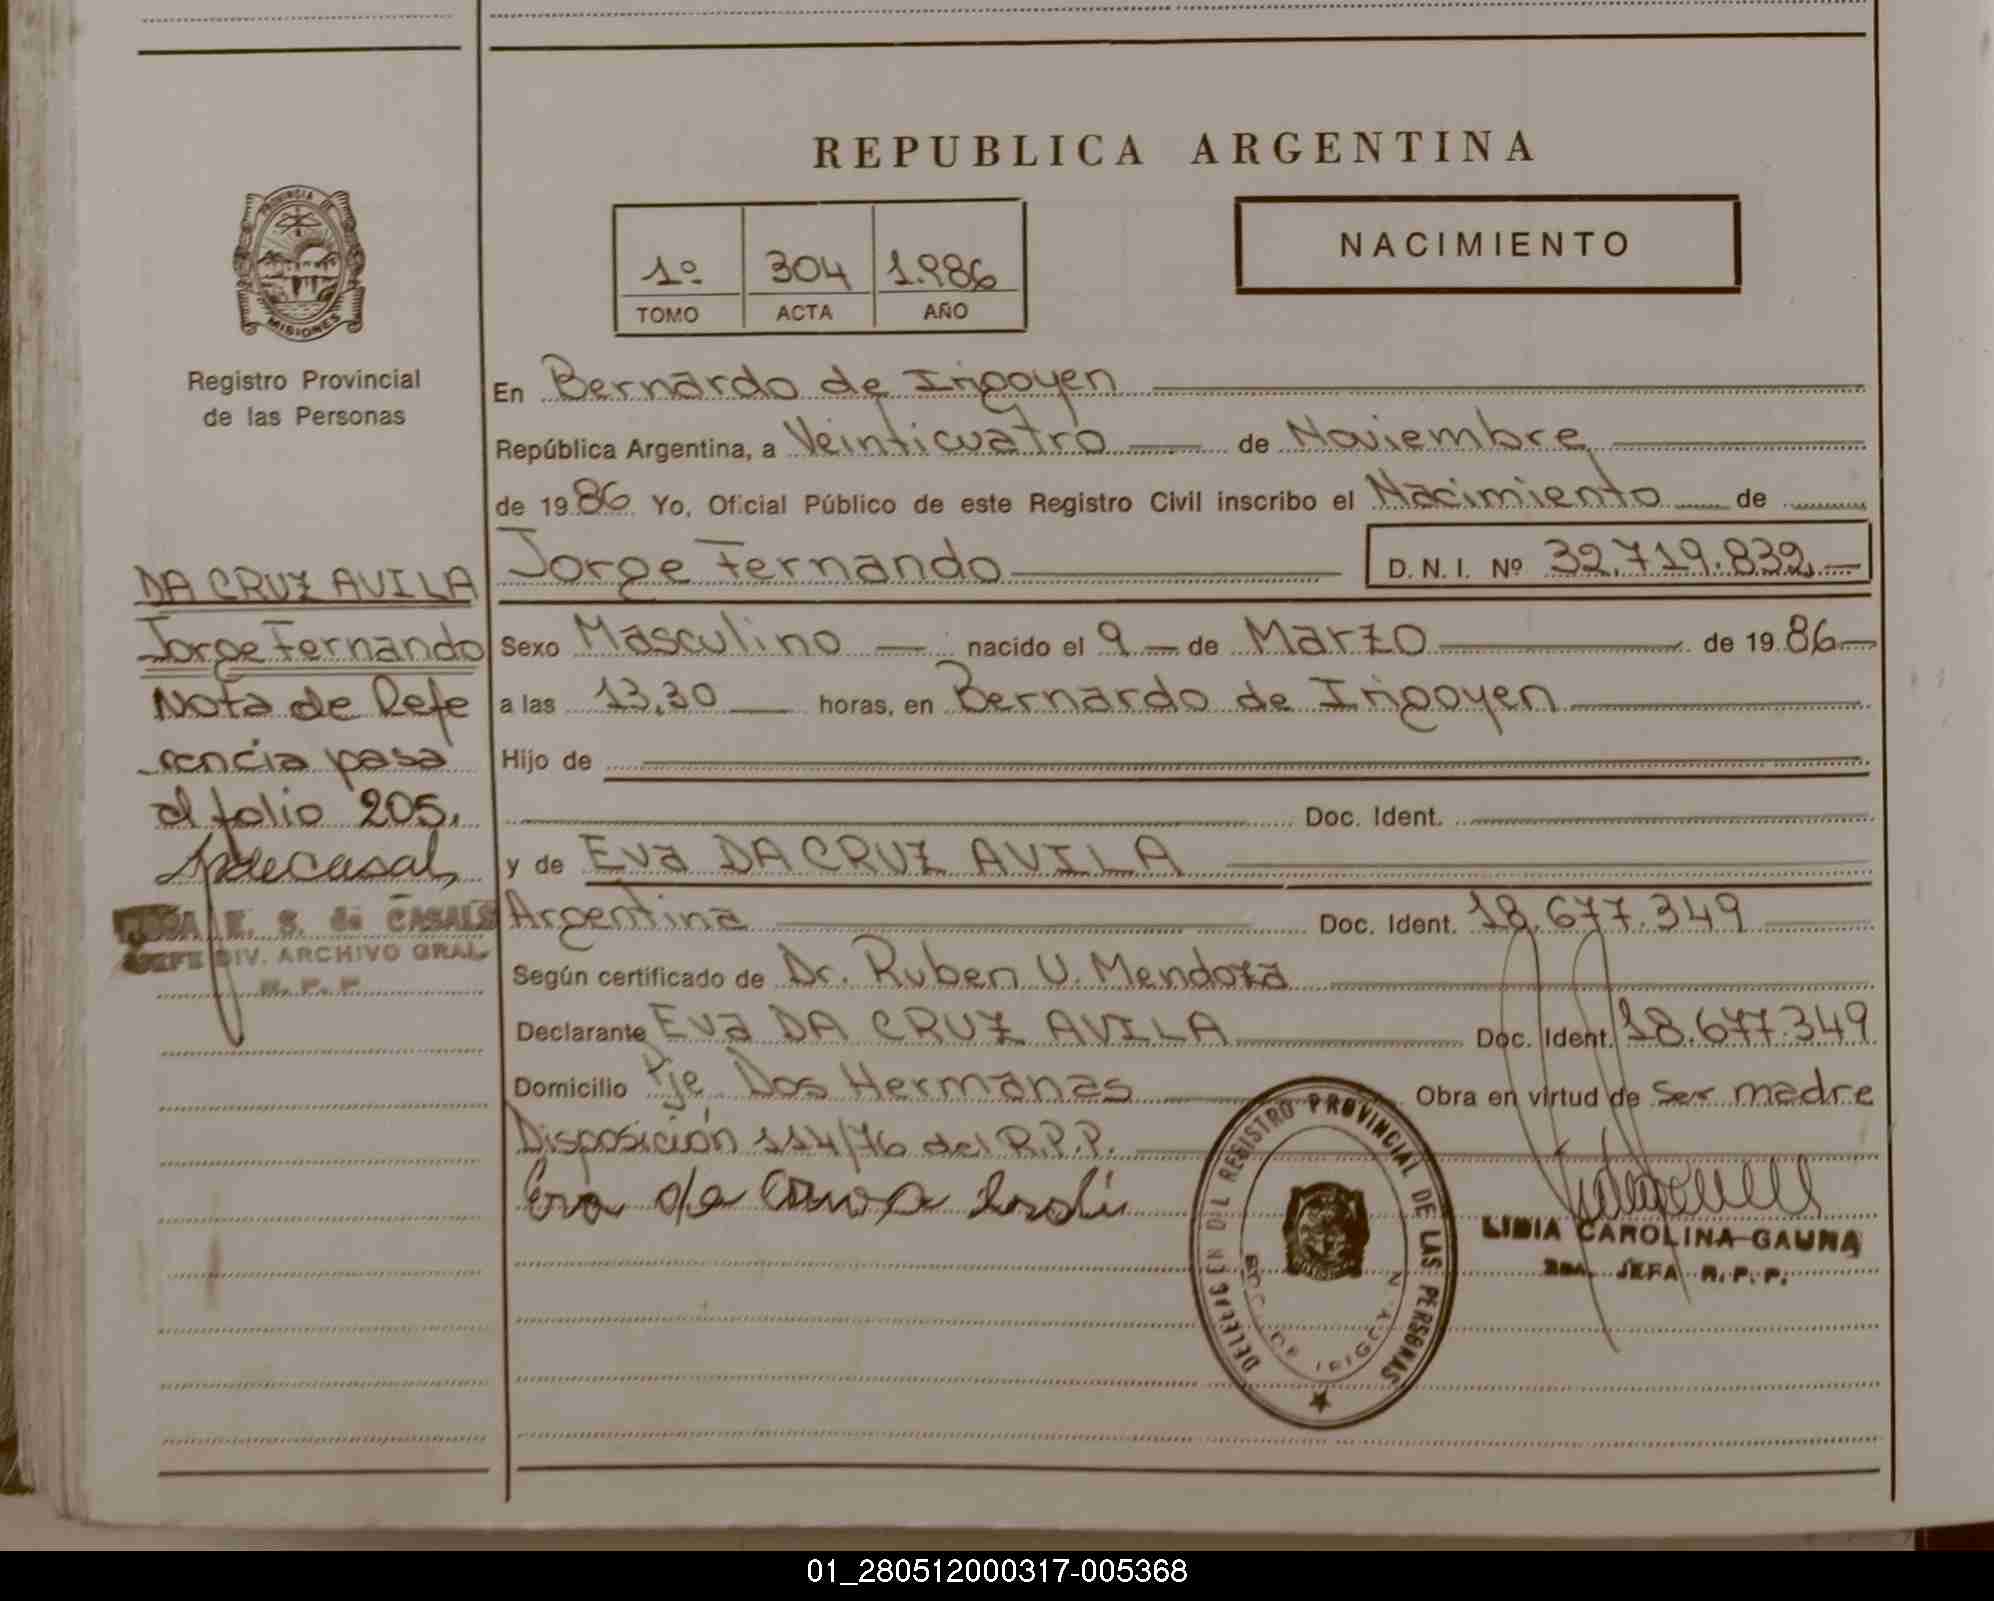 REPUBLICA ARGENTINA
PROVINCIA DE
MISIONES
Registro Provincial
de las Personas
1º 304 1.986
TOMO ACTA AÑO
NACIMIENTO
En Bernardo de Irigoyen
República Argentina, a Veinticuatro de Noviembre
de 1986 Yo, Oficial Público de este Registro Civil inscribo el Nacimiento de
Jorge Fernando D.N.I. Nº 32.719.832.
Sexo Masculino nacido el 9 de Marzo de 1986
a las 13,30 horas, en Bernardo de Irigoyen
Hijo de
Doc. Ident.
y de Eva DA CRUZ AVILA
Argentina Doc. Ident. 18.677.349
Según certificado de Dr. Ruben U. Mendoza
Declarante Eva DA CRUZ AVILA Doc. Ident. 18.677.349
Domicilio Pje Dos Hermanas Obra en virtud de Ser madre
Disposición 114/76 del R.P.P.
Eva da
DA CRUZ AVILA
Jorge Fernando
Nota de Refe
rencia pasa
al folio 205.
E. S. de CASALS
JEFE DIV. ARCHIVO GRAL.
R. P. P.
DELEGACION DEL REGISTRO PROVINCIAL DE LAS PERSONAS
BDO. DE IRIGOYEN
LIDIA CAROLINA GAUNA
2da. JEFA R. P. P.
01_280512000317-005368